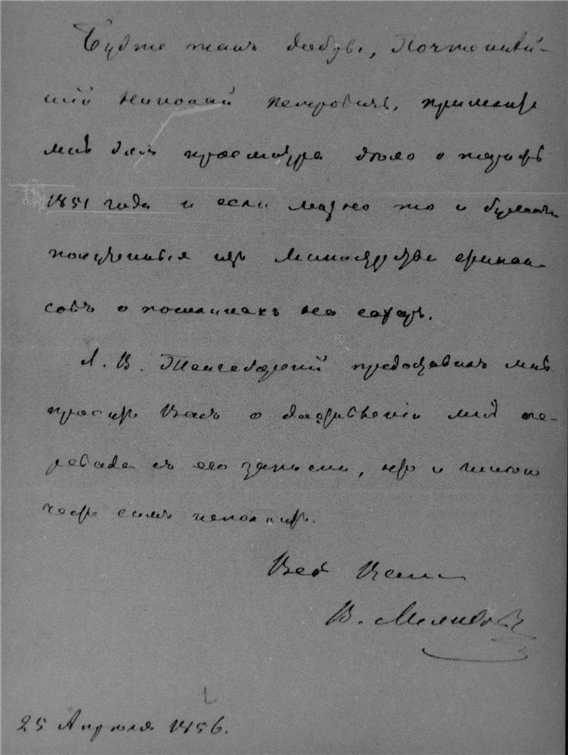 Будте такъ добры, Почтеннѣй-
шій Николай Петровичъ, прислать
мнѣ для просмотра дѣло о тарифѣ
1851 года и если можно то и бумаги
полученныя изъ Министерства финан-
совъ о пошлинахъ на сахаръ.
Л. В. Тенгоборскій предоставилъ мнѣ
просить Васъ о доставленіи мнѣ пе-
ревода съ его записки, что и имѣю
честь симъ исполнить.
Весь Вашъ
В.
25 Апрѣля 1856.